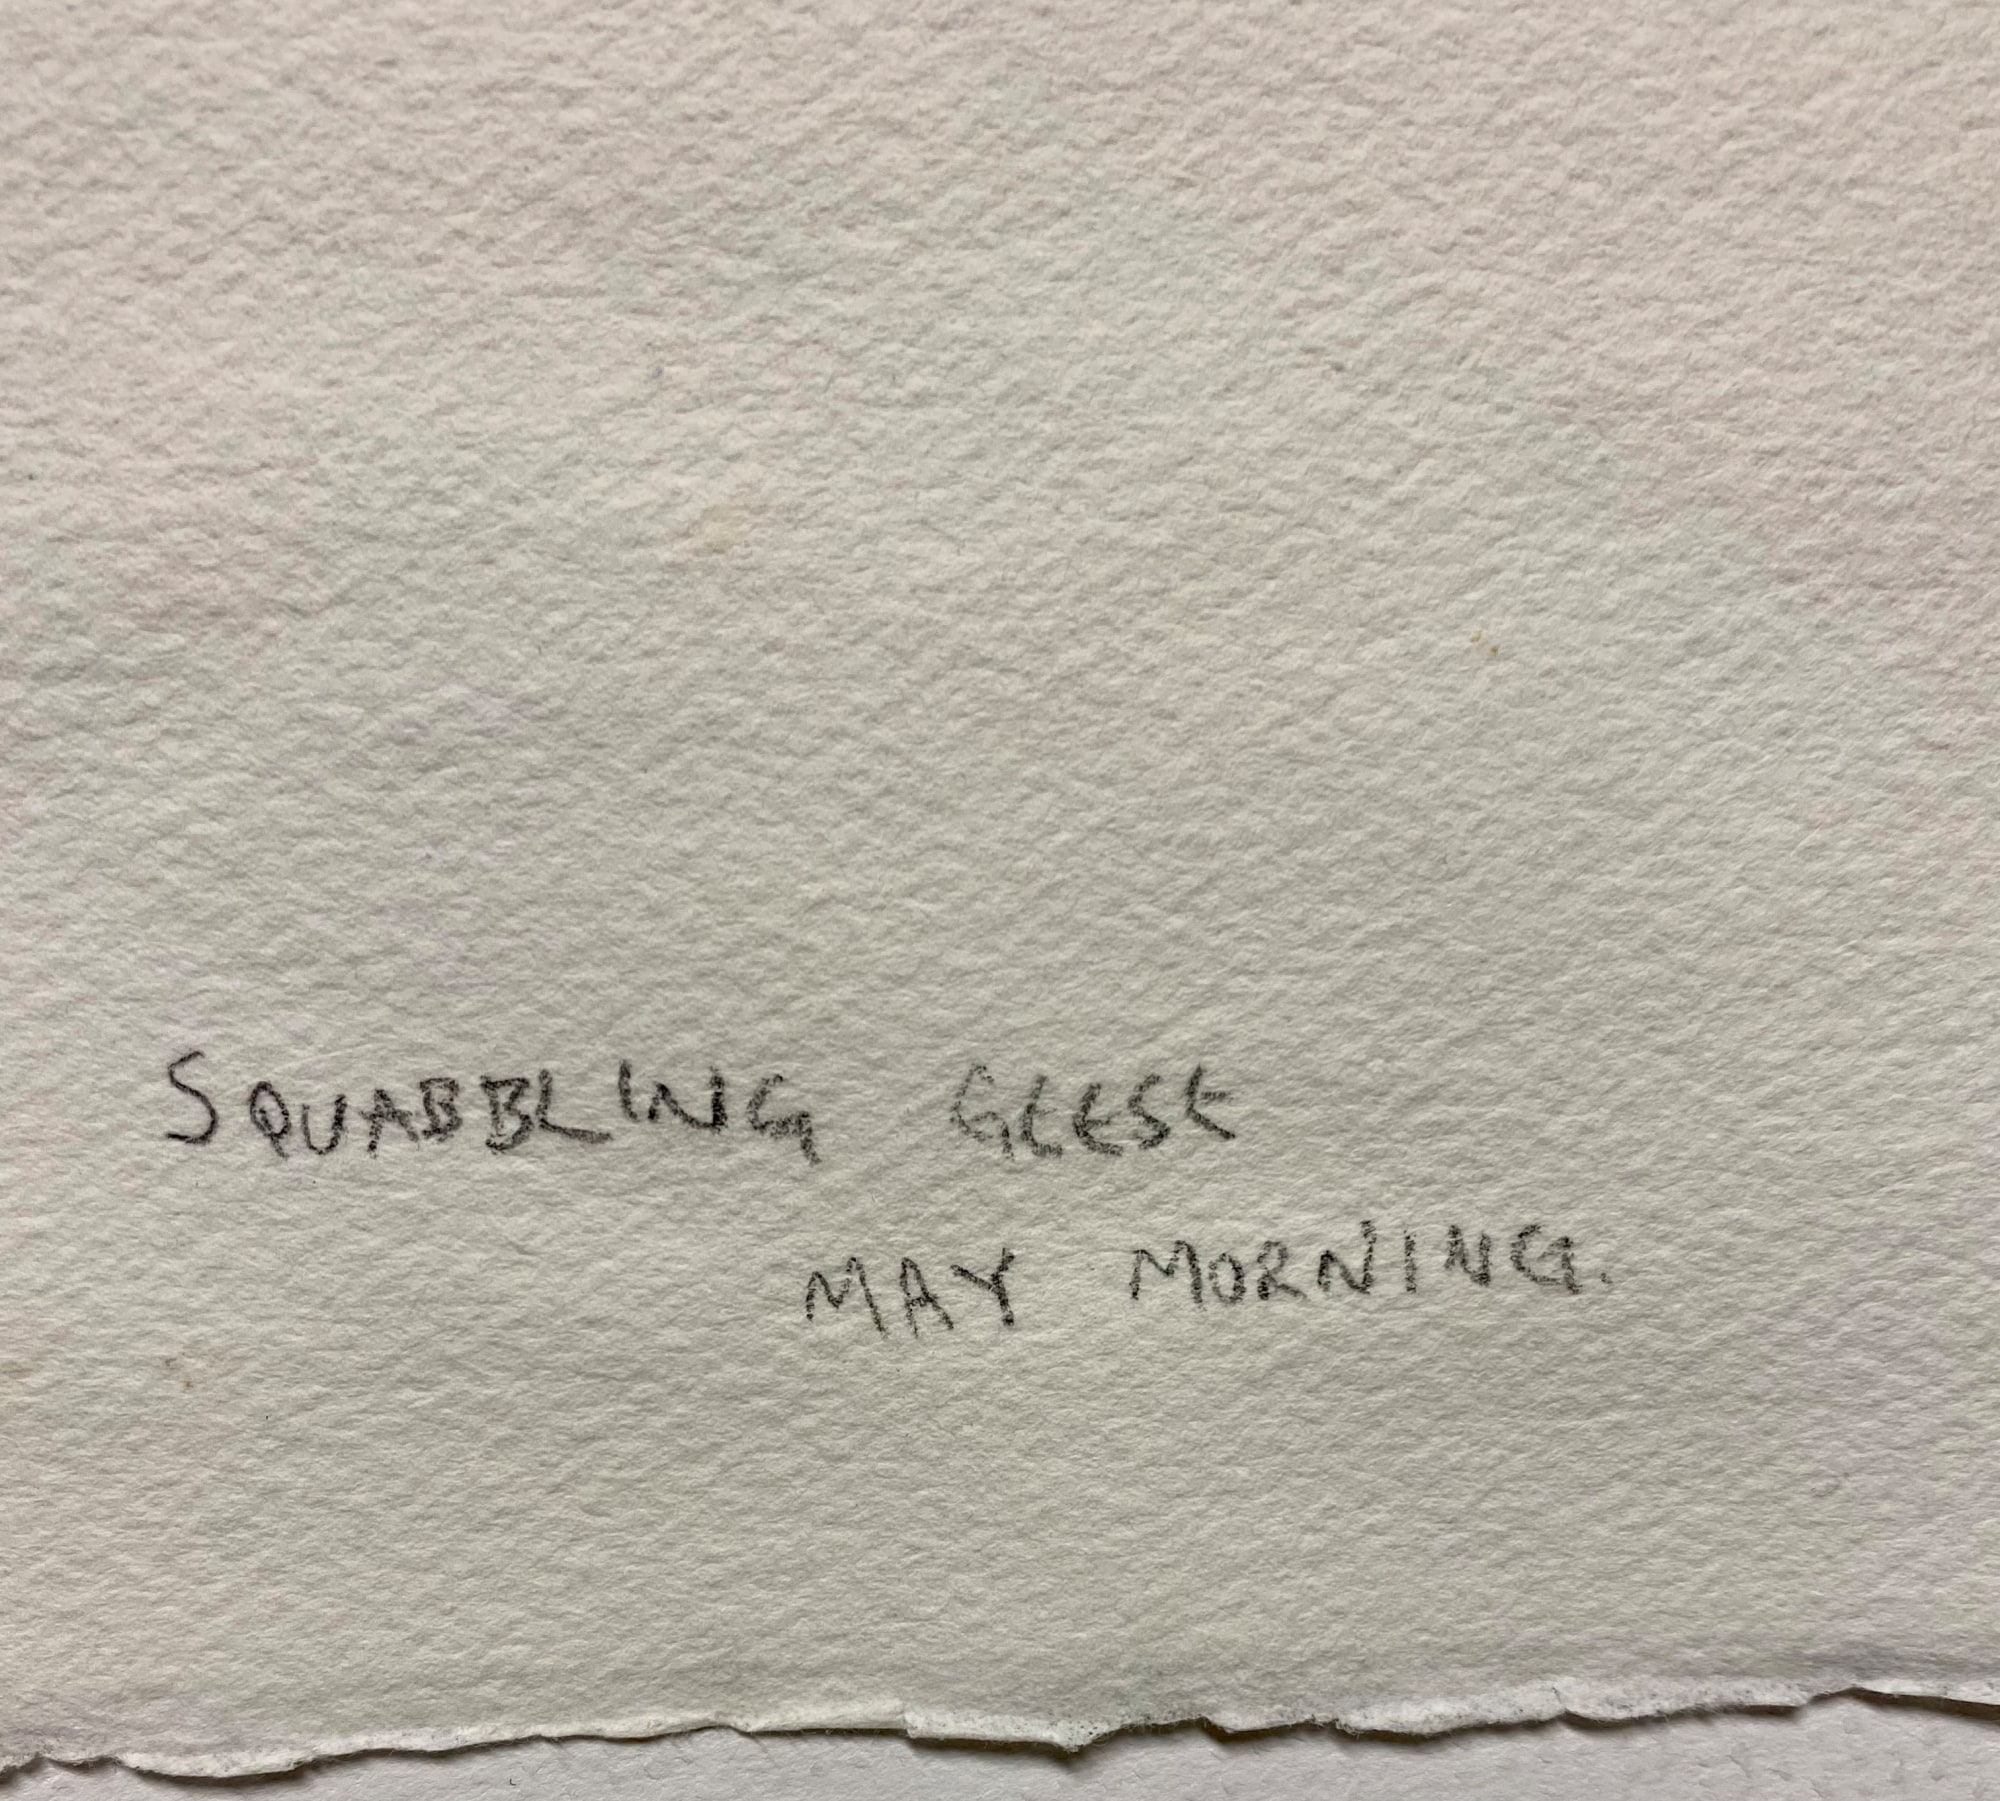 SQUABBLING GEESE
MAY MORNING.